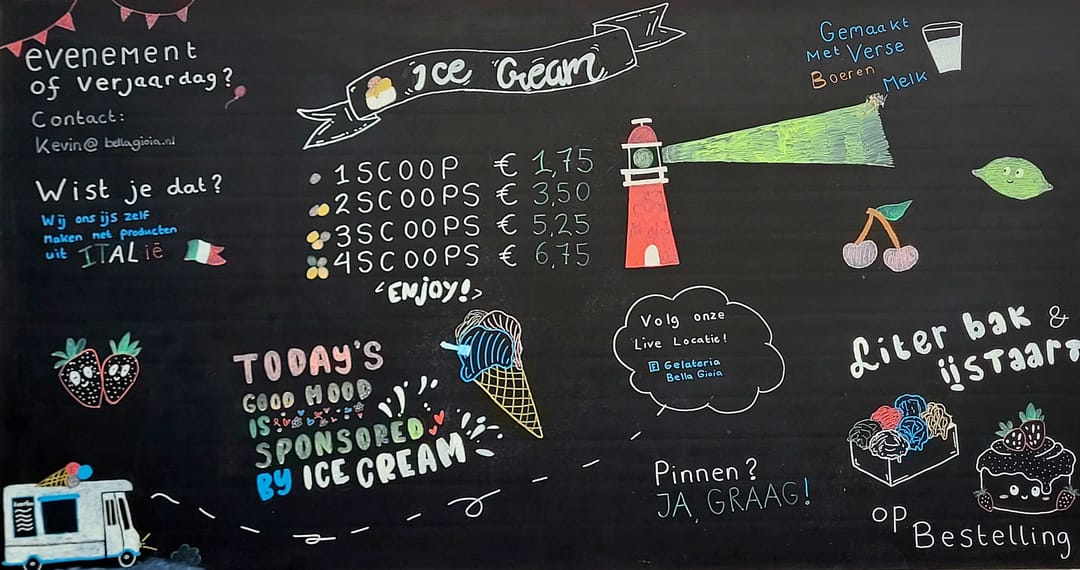 evenement
of verjaardag?
Contact:
Kevin@bellagioia.nl
Wist je dat?
Wij ons ijs zelf
maken met producten
uit ITALië
Ice Cream
1 SCOOP € 1,75
2 SCOOPS € 3,50
3 SCOOPS € 5,25
4 SCOOPS € 6,75
ENJOY!
Gemaakt
Met Verse
Boeren Melk
TODAY'S
GOOD MOOD
IS
SPONSORED
BY ICE CREAM
Volg onze
Live Locatie!
Gelateria
Bella Gioia
Pinnen?
JA, GRAAG!
Liter bak &
ijsTAART
op Bestelling